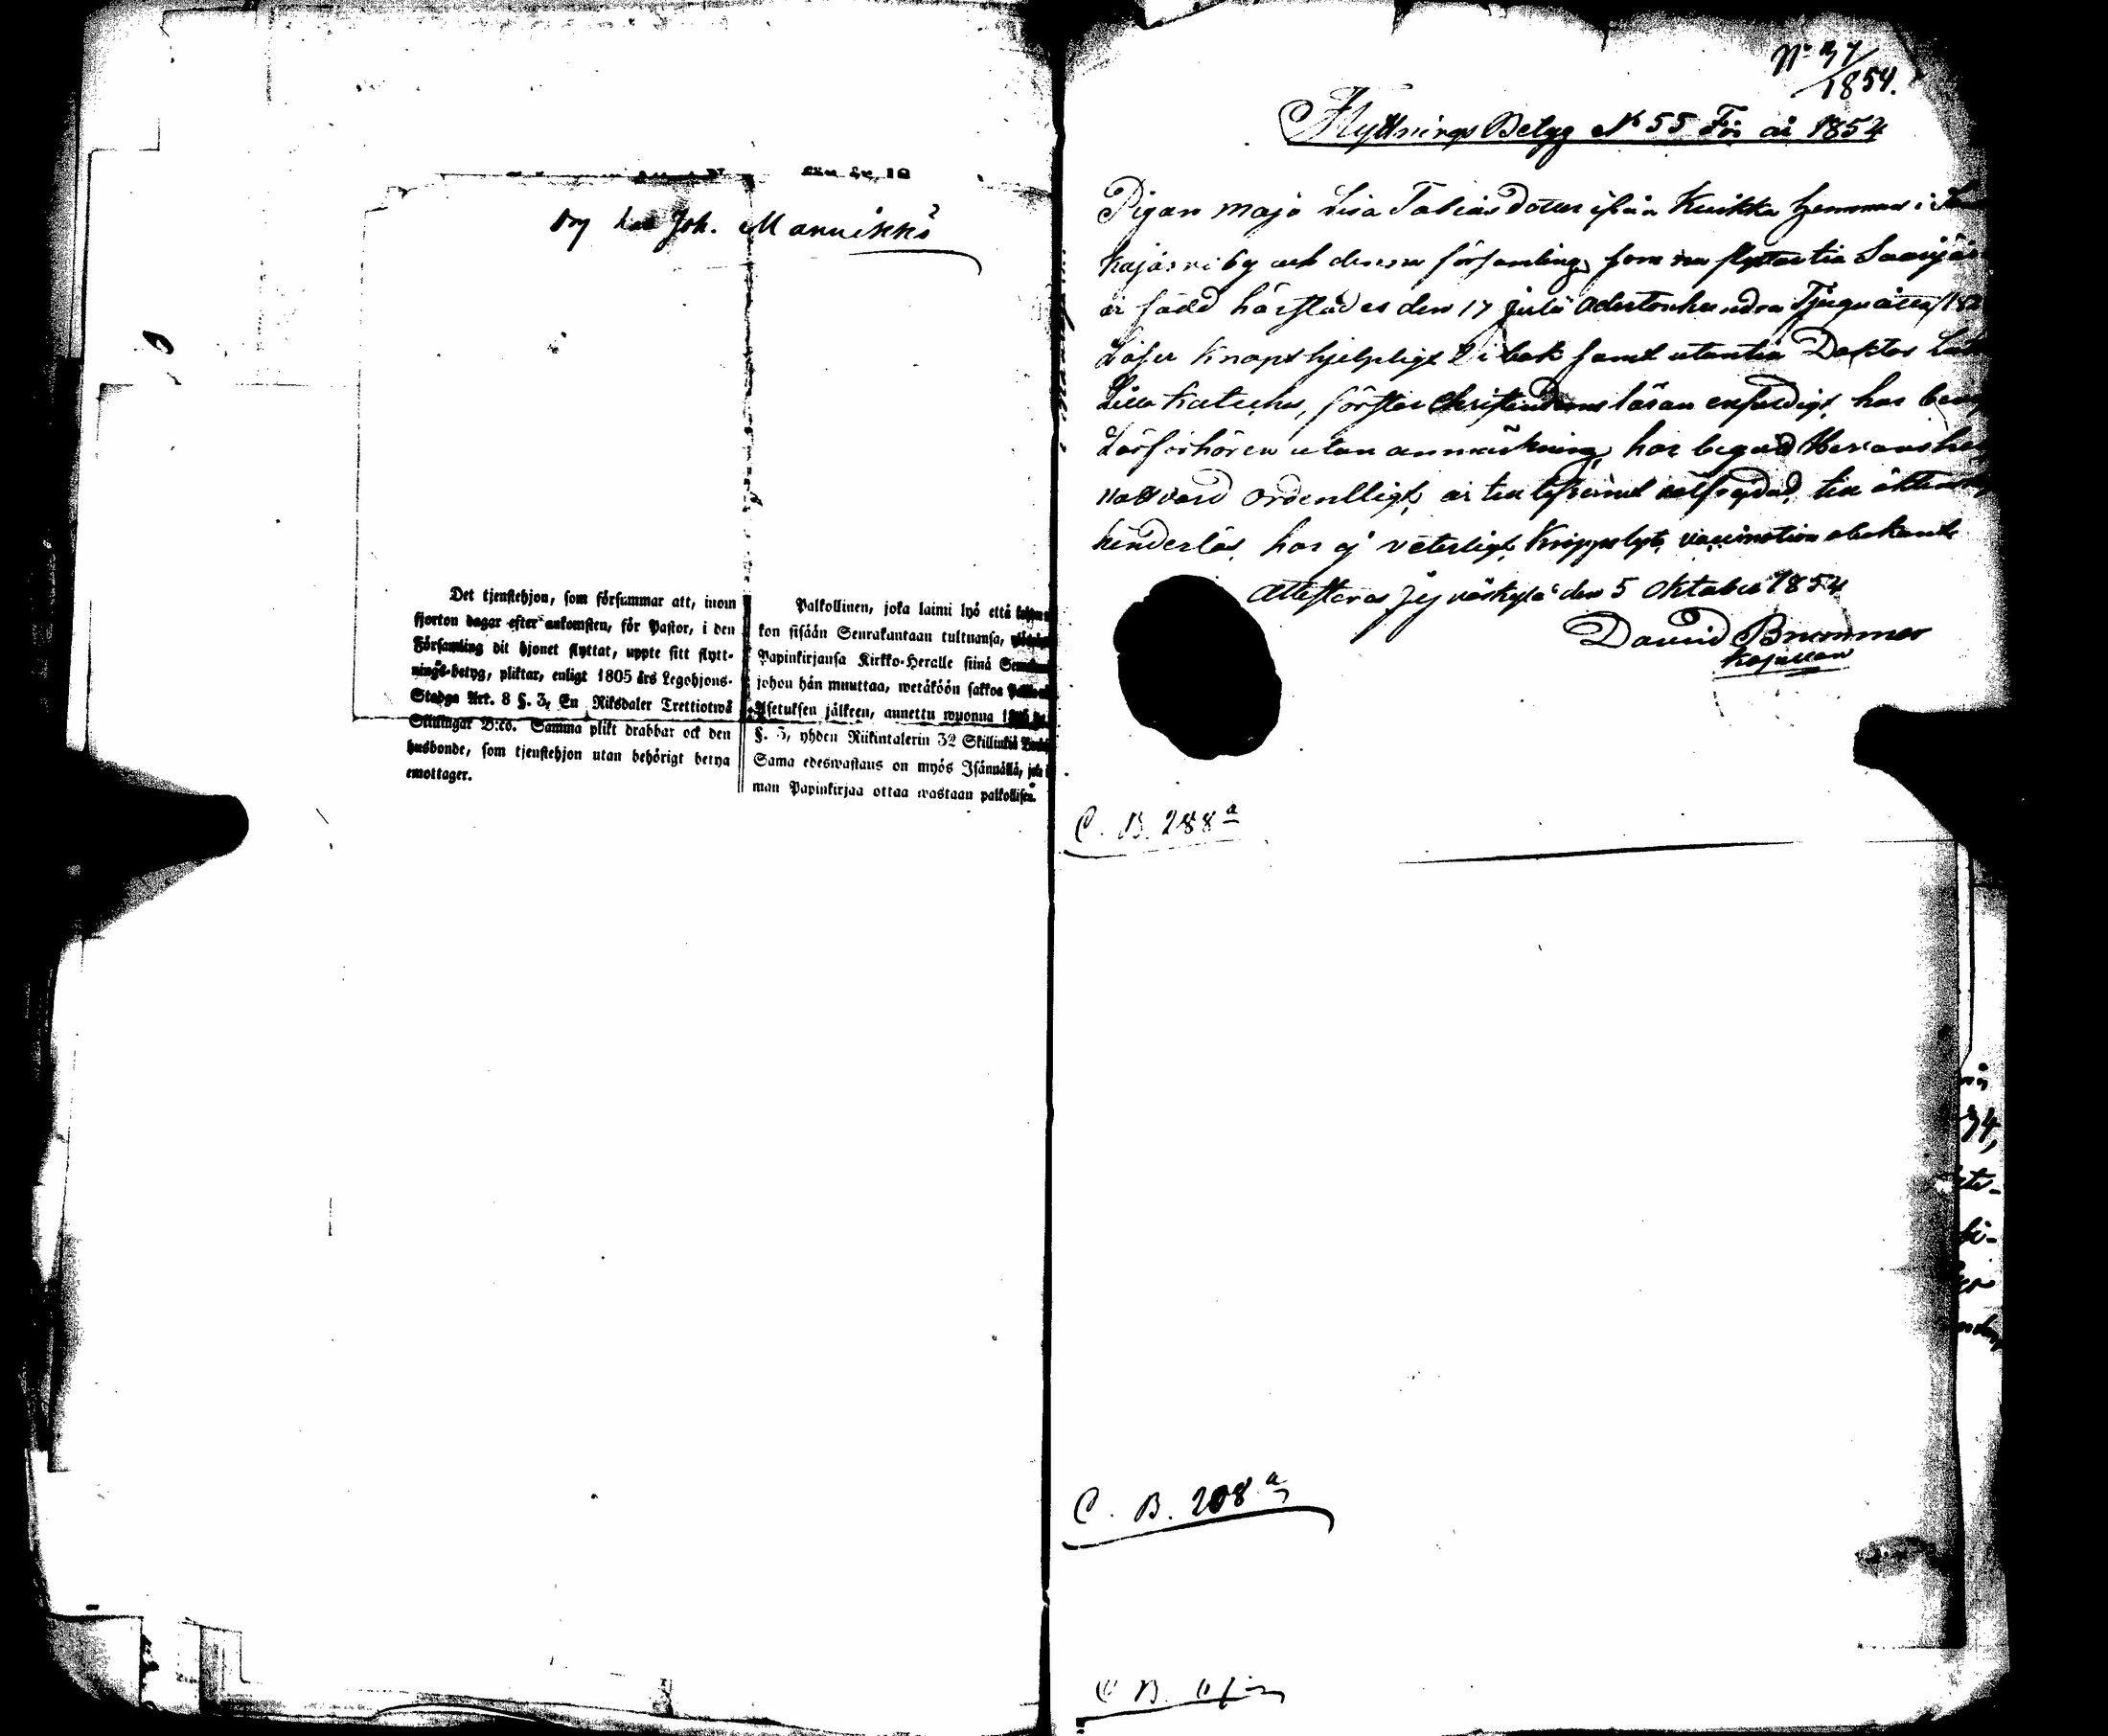 Joh. Mannikkö
Det tjenstehjon, som försummar att, inom
fjorton dagar efter ankomsten, för Pastor, i den
Församling dit hjonet flyttat, uppte sitt flytt-
nings-betyg, pliktar, enligt 1805 års Legohjons-
Stadga Art. 8 §. 3, En Riksdaler Trettiotwå
Skillingar B:co. Samma plikt drabbar ock den
husbonde, som tjenstehjon utan behörigt betyg
emottager.
Palkollinen, joka laimi lyö että
kon sisään Seurakuntaan tultuansa,
Papinkirjansa Kirkko-Heralle siinä
johon hän muuttaa, wetäköön sakkoa
Asetuksen jälkeen, annettu wuonna
§. 3, yhden Riikintalerin 32 Skillinkiä
Sama edeswastaus on myös Isännällä,
man Papinkirjaa ottaa wastaan palkollisen.
No 37
1854.
Flyttnings Betyg No 55 För år 1854
Pigan Maja Lisa Tobiasdotter ifrån Kuikka hemman i
kajärvi by och denna församling, som nu flyttar till Saarijär
är född härstädes den 17 Julii Adertonhundra Tjuguåtta/182
Läser knapt hjelpligt i bok samt utantill Doktor
Lilla Katches, förstår Christendoms läran enfaldigt, har
Läsförhören utan anmärkning, har begådt Herrans
nattvard ordentligt, är till lefvernet välfrejdad, till äktenskap
hinderlös, har ej veterligt kroppslyte, vaccination obekant
Attesteras Jyväskylä den 5 Oktober 1854
David Brummer
Kapellan
C. B. 288 a
C. B. 208 a
C B.